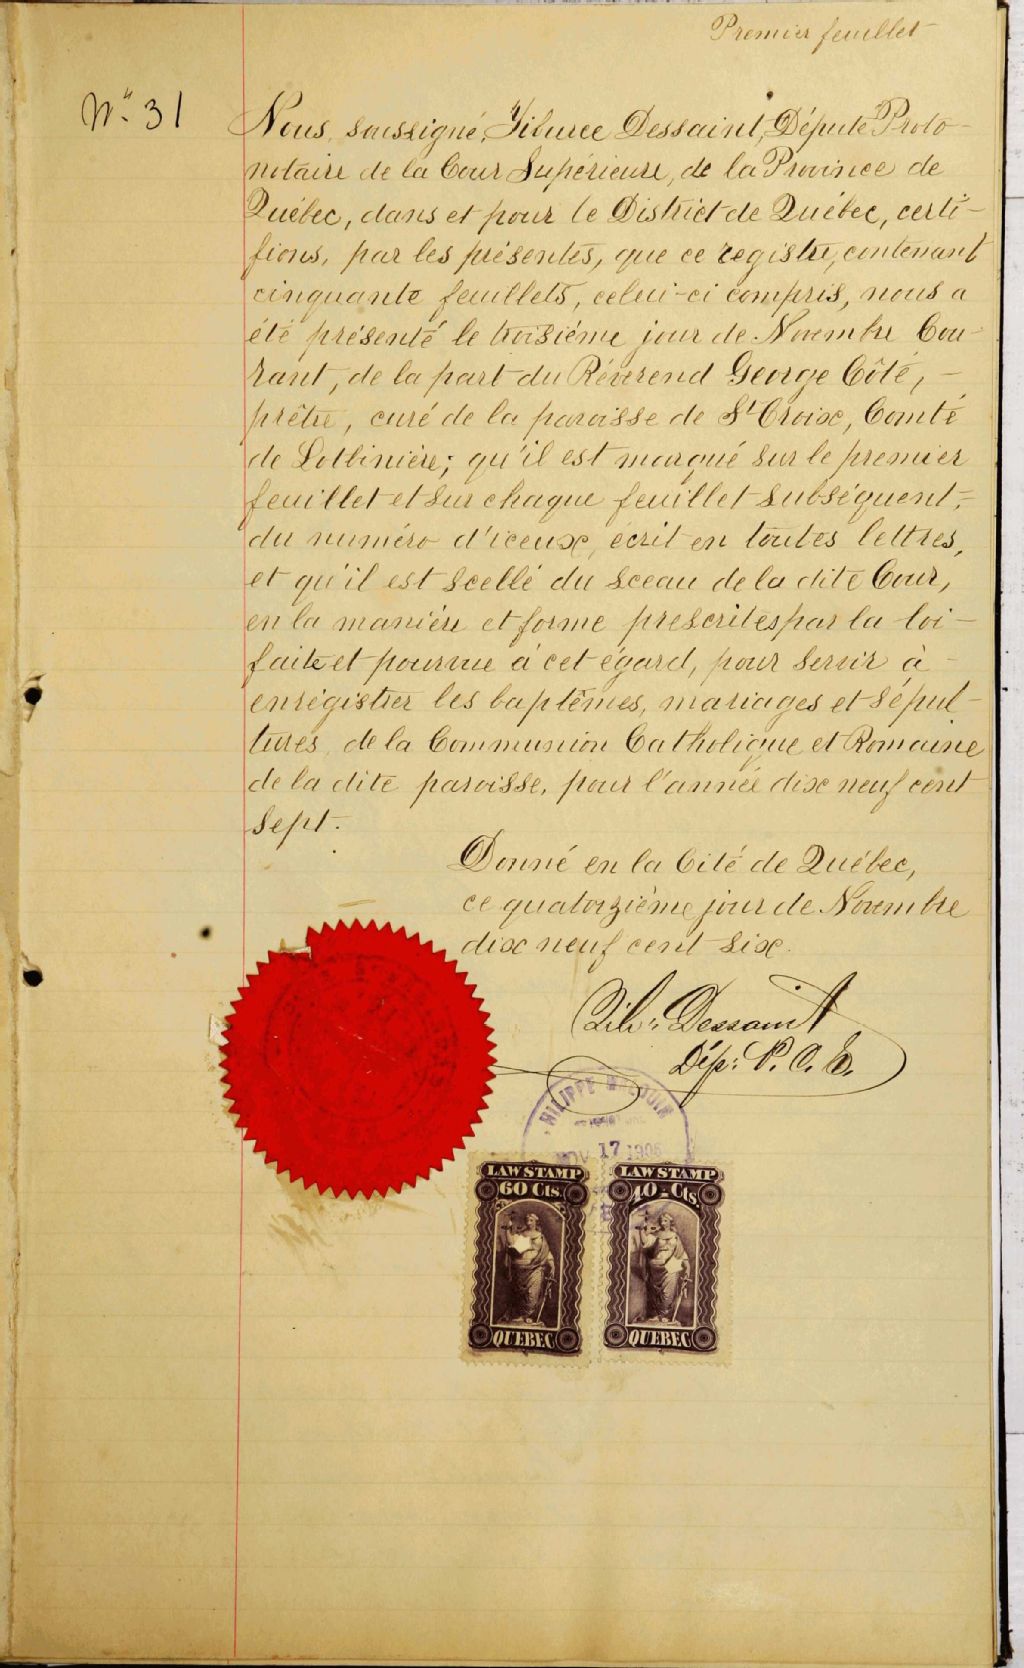 Premier feuillet
N° 31
Nous, soussigné, Tiburce Dessaint, Député Proto-
notaire de la Cour Supérieure, de la Province de
Québec, dans et pour le District de Québec, certi-
fions, par les présentes, que ce registre, contenant
cinquante feuillets, celui-ci compris, nous a
été présenté le troisième jour de Novembre Cou-
rant, de la part du Révérend George Côté, -
prêtre, curé de la paroisse de St Croix, Comté
de Lotbinière; qu'il est marqué sur le premier
feuillet et sur chaque feuillet subséquent,
du numéro d'iceux, écrit en toutes lettres,
et qu'il est scellé du sceau de la dite Cour,
en la manière et forme prescrites par la loi -
faite et pourvue à cet égard, pour servir à -
enrégistrer les baptêmes, mariages et sépul-
tures, de la Communion Catholique et Romaine
de la dite paroisse, pour l'année dix neuf cent
sept.
Donné en la Cité de Québec,
ce quatorzième jour de Novembre
dix neuf cent six.
Tib: Dessaint
Dép: P. C. S.
NOV 17 1906
LAW STAMP LAW STAMP
60 Cts. 40 Cts.
QUEBEC QUEBEC